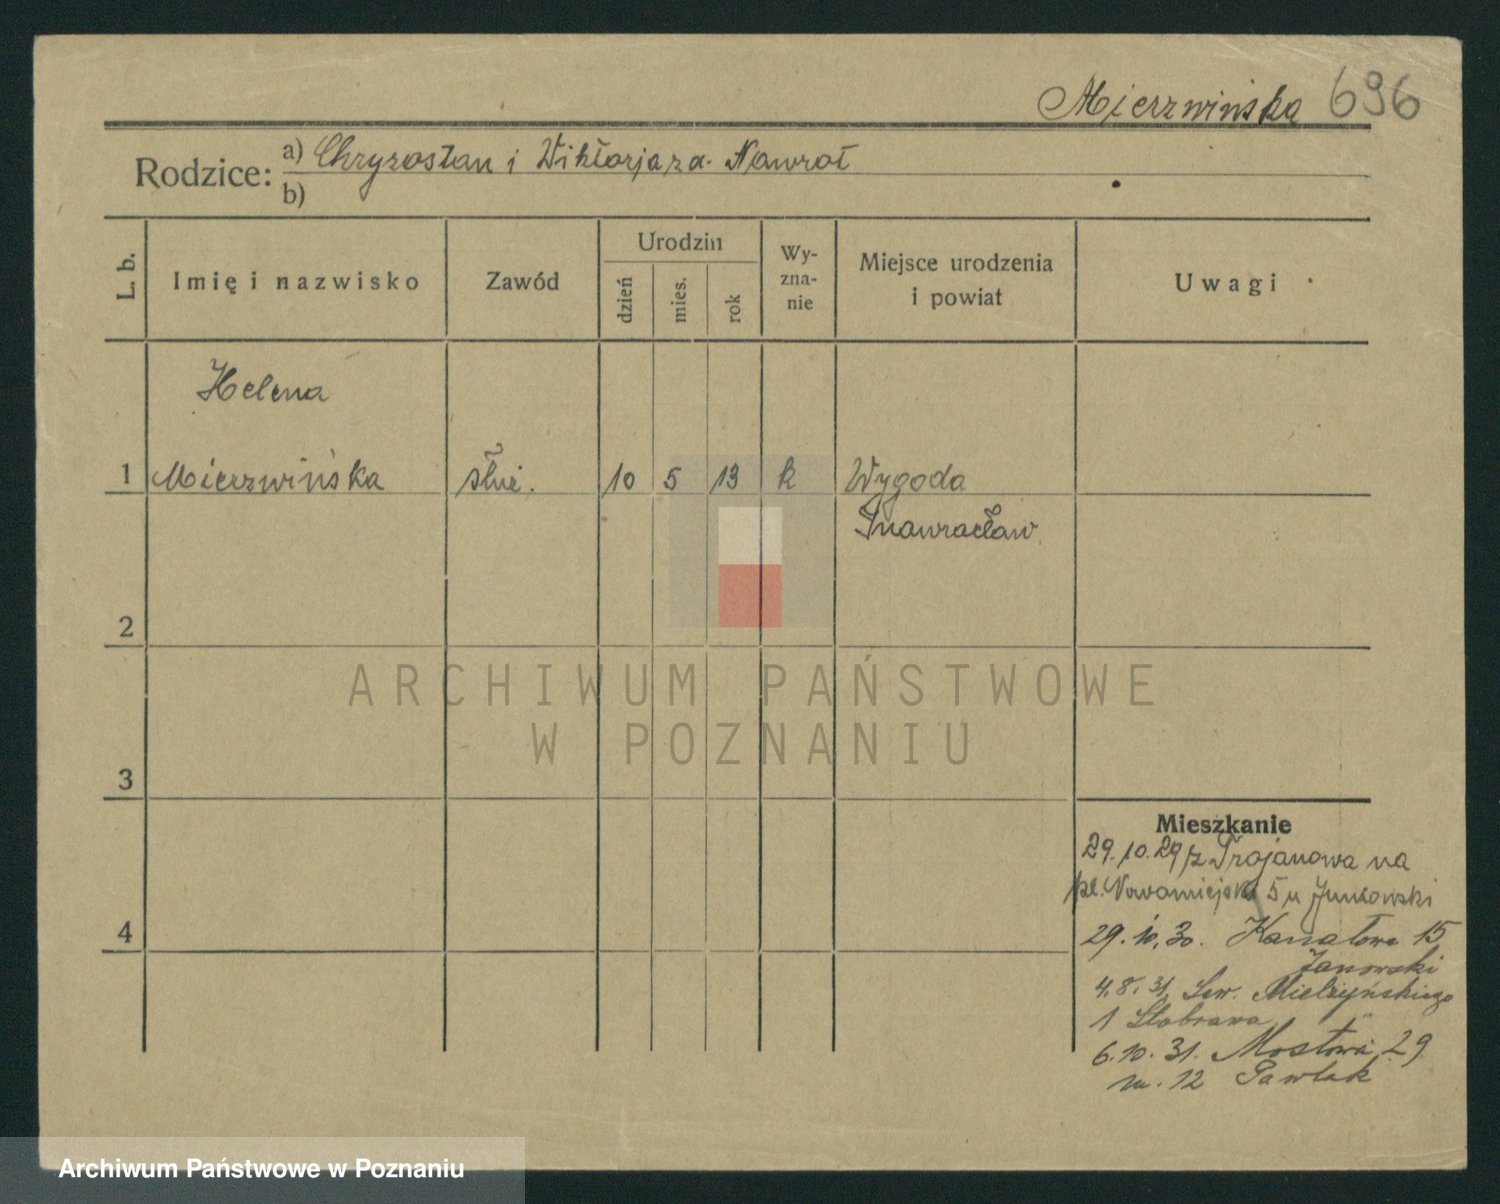 Mierzwińska 696
Rodzice: a) Chryzostom i Wiktorja z d. Nawrot
b)
L. b.
Imię i nazwisko
Zawód
Urodzin
dzień
mies.
rok
Wy-
zna-
nie
Miejsce urodzenia
i powiat
Uwagi
Helena
1 Mierzwińska służ. 10 5 13 k Wygoda
Inowrocław
2
ARCHIWUM PAŃSTWOWE
W POZNANIU
3
Mieszkanie
29.10.29 z Trojanowa na
pl. Nowomiejski 5 u Junkowski
4
29.10.30. Kanałowa 15
Janowski
4.8.31. Sew. Mielżyńskiego
1 Słobrawa
6.10.31. Mostowa 29
m. 12 Pawlak
Archiwum Państwowe w Poznaniu